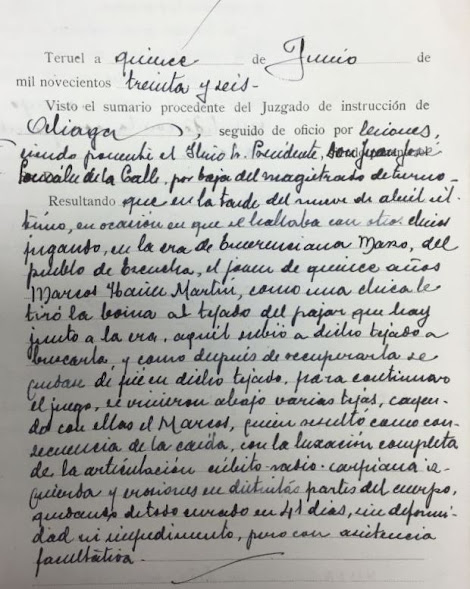 Teruel a quince de Junio de
mil novecientos treinta y seis-
Visto el sumario procedente del Juzgado de instrucción de
Aliaga, seguido de oficio por lesiones,
siendo ponente el Ilmo Sr. Presidente, Don Juan José
González de la Calle, por baja del magistrado de turno-
Resultando que en la tarde del nueve de abril úl-
timo, en ocasión en que se hallaba con otros chicos
jugando, en la era de Emerenciana Mano, del
pueblo de Escucha, el joven de quince años
Marcos Martín, como una chica le
tiró la boina al tejado del pajar que hay
junto a la era, aquél subió a dicho tejado a
buscarla, y como después de recuperarla se
quedase de pié en dicho tejado, para continuar
el juego, se vinieron abajo varias tejas, cayen-
do con ellas el Marcos, quien resultó como con-
secuencia de la caída, con la luxación completa
de la articulación cúbito-radio-carpiana iz-
quierda y erosiones en distintas partes del cuerpo,
quedando de todo curado en 41 días, sin deformi-
dad ni impedimento, pero con asistencia
facultativa-